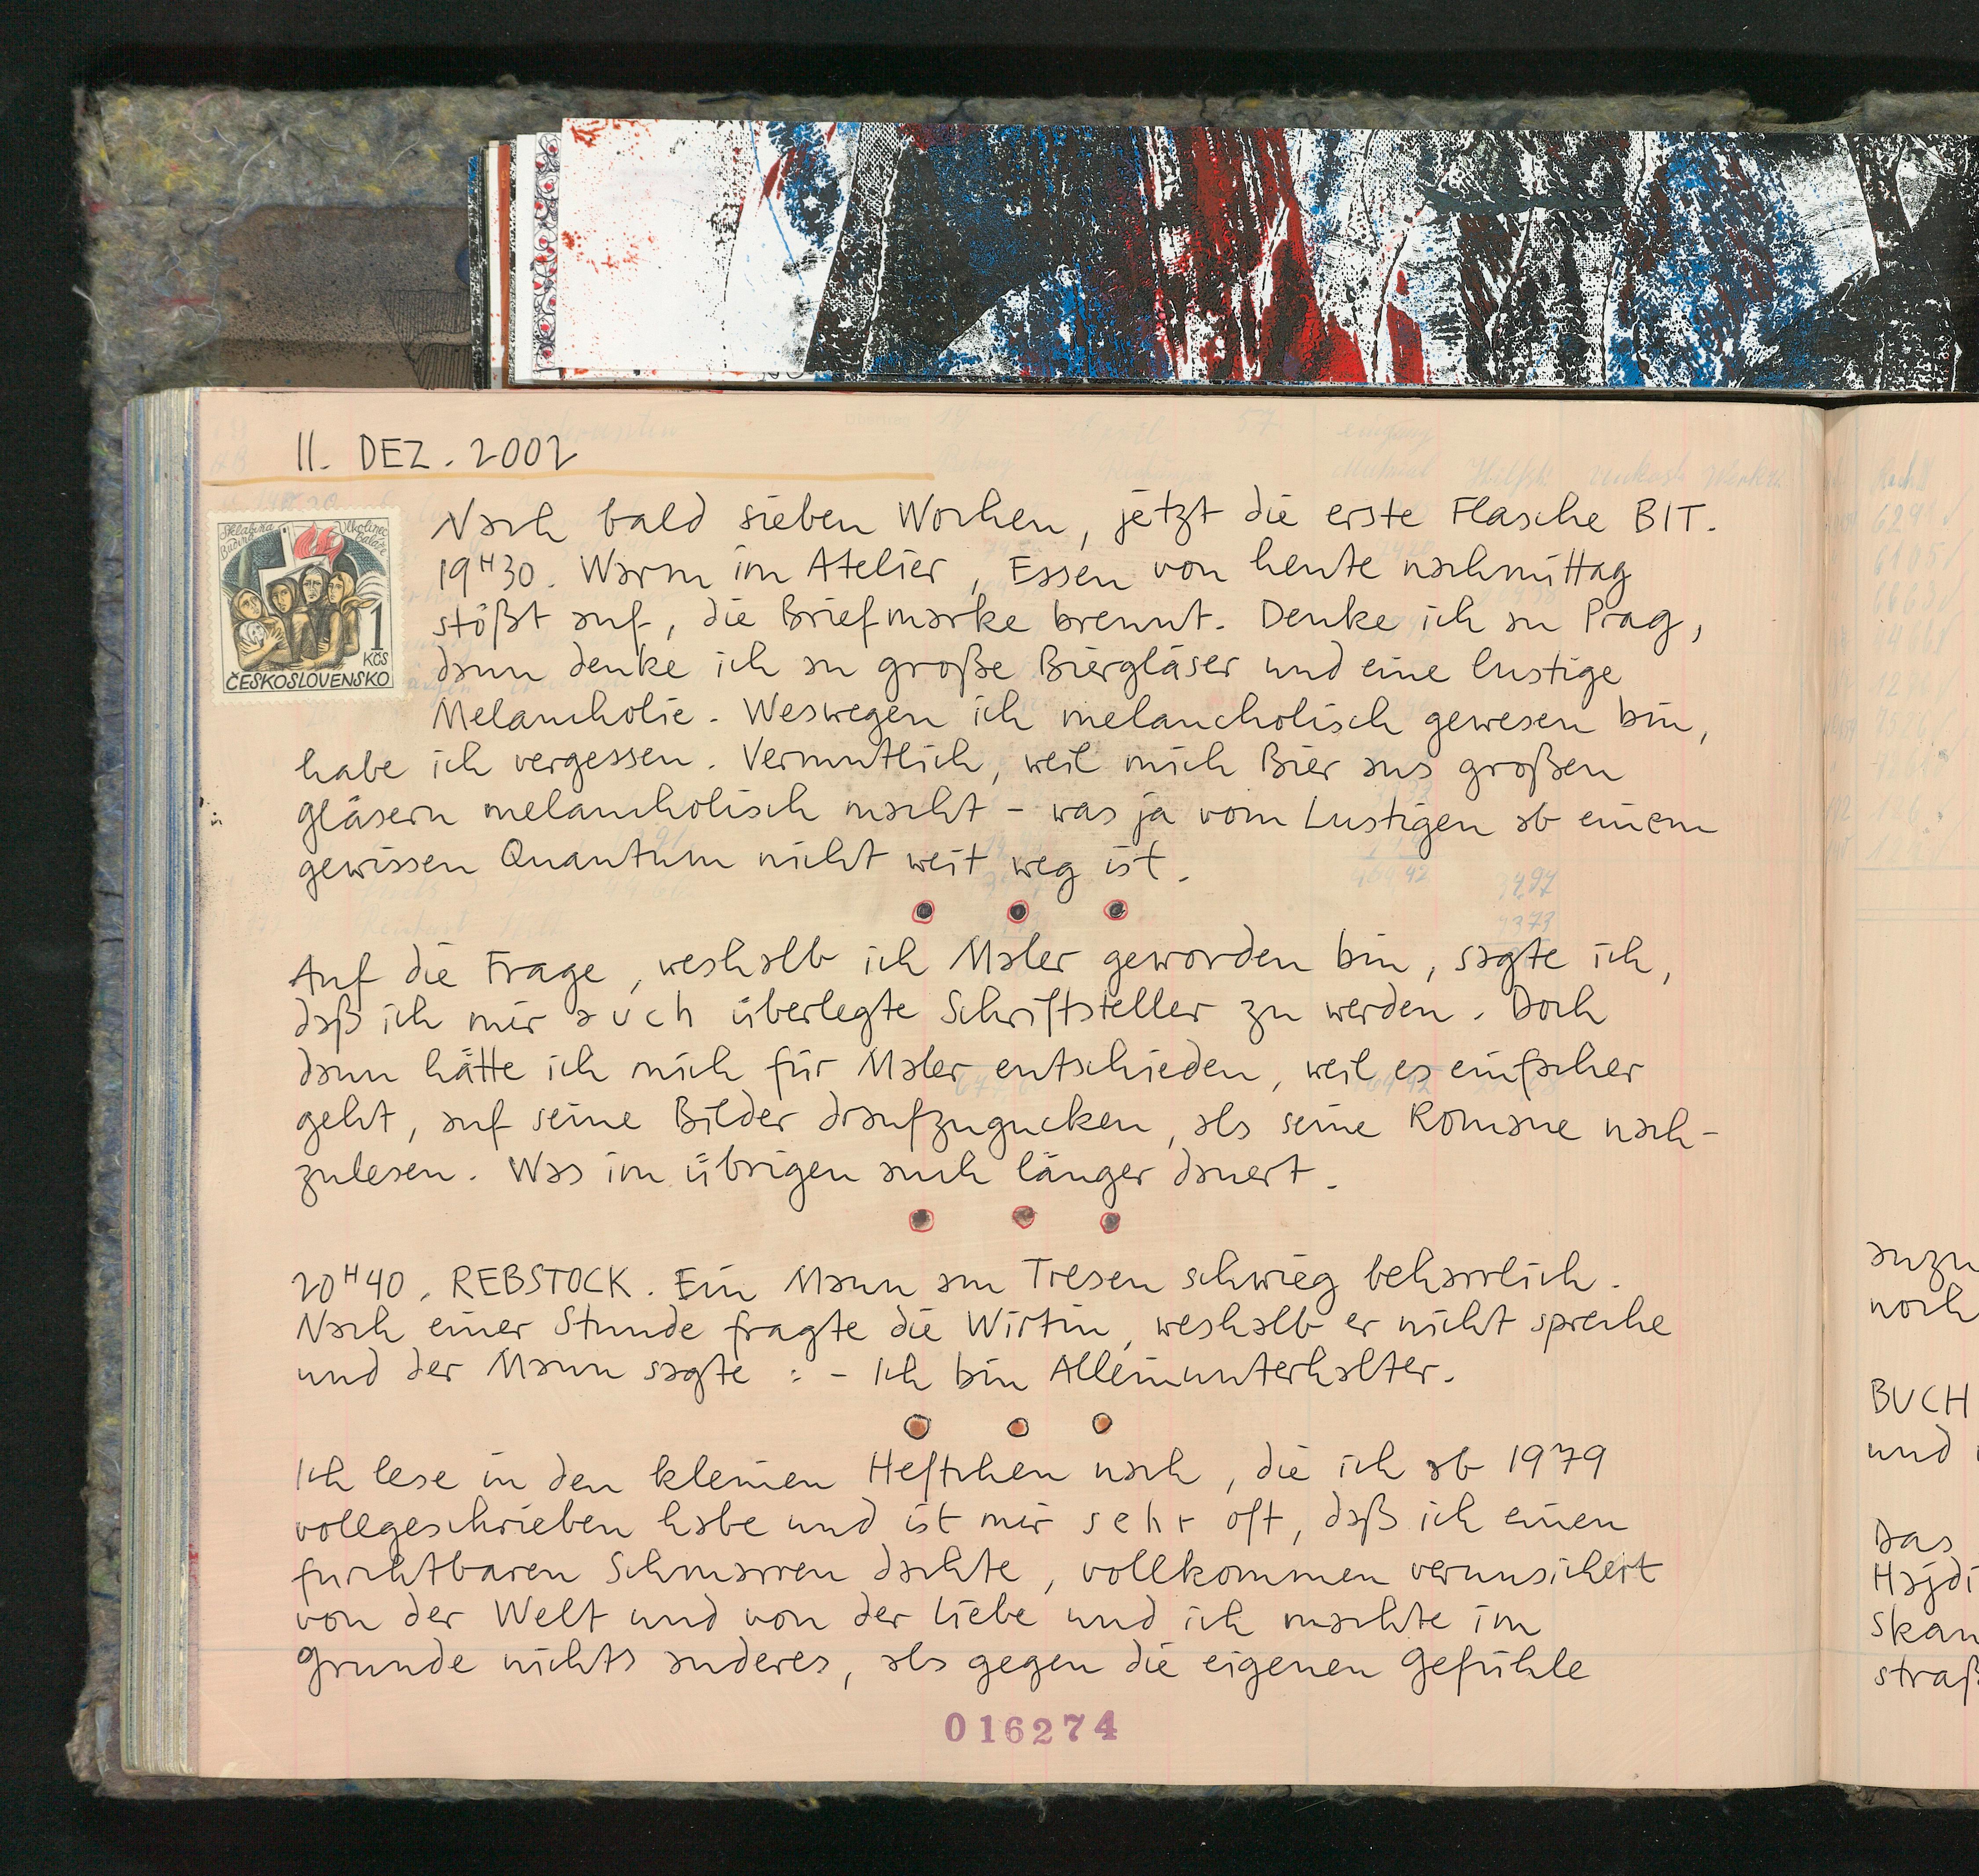 11. DEZ. 2002
Nach bald sieben Wochen, jetzt die erste Flasche BIT.
19H30. Warm im Atelier, Essen von heute nachmittag
stößt auf, die Briefmarke brennt. Denke ich an Prag,
dann denke ich an große Biergläser und eine lustige
Melancholie. Weswegen ich melancholisch gewesen bin,
habe ich vergessen. Vermutlich, weil mich Bier aus großen
Gläsern melancholisch macht - was ja vom Lustigen ab einem
gewissen Quantum nicht weit weg ist.
1
Kčs
ČESKOSLOVENSKO
Auf die Frage, weshalb ich Maler geworden bin, sagte ich,
daß ich mir auch überlegte Schriftsteller zu werden. Doch
dann hätte ich mich für Maler entschieden, weil es einfacher
geht, auf seine Bilder draufzugucken, als seine Romane nach-
zulesen. Was im übrigen auch länger dauert.
20H40. REBSTOCK. Ein Mann am Tresen schwieg beharrlich.
Nach einer Stunde fragte die Wirtin, weshalb er nicht spreche
und der Mann sagte : - Ich bin Alleinunterhalter.
Ich lese in den kleinen Heftchen nach, die ich ab 1979
vollgeschrieben habe und ist mir sehr oft, daß ich einen
furchtbaren Schmarren dachte, vollkommen verunsichert
von der Welt und von der Liebe und ich machte im
Grunde nichts anderes, als gegen die eigenen Gefühle
016274
anzu
noch
BUCH
und
Das
Hajdi
Skan
straß